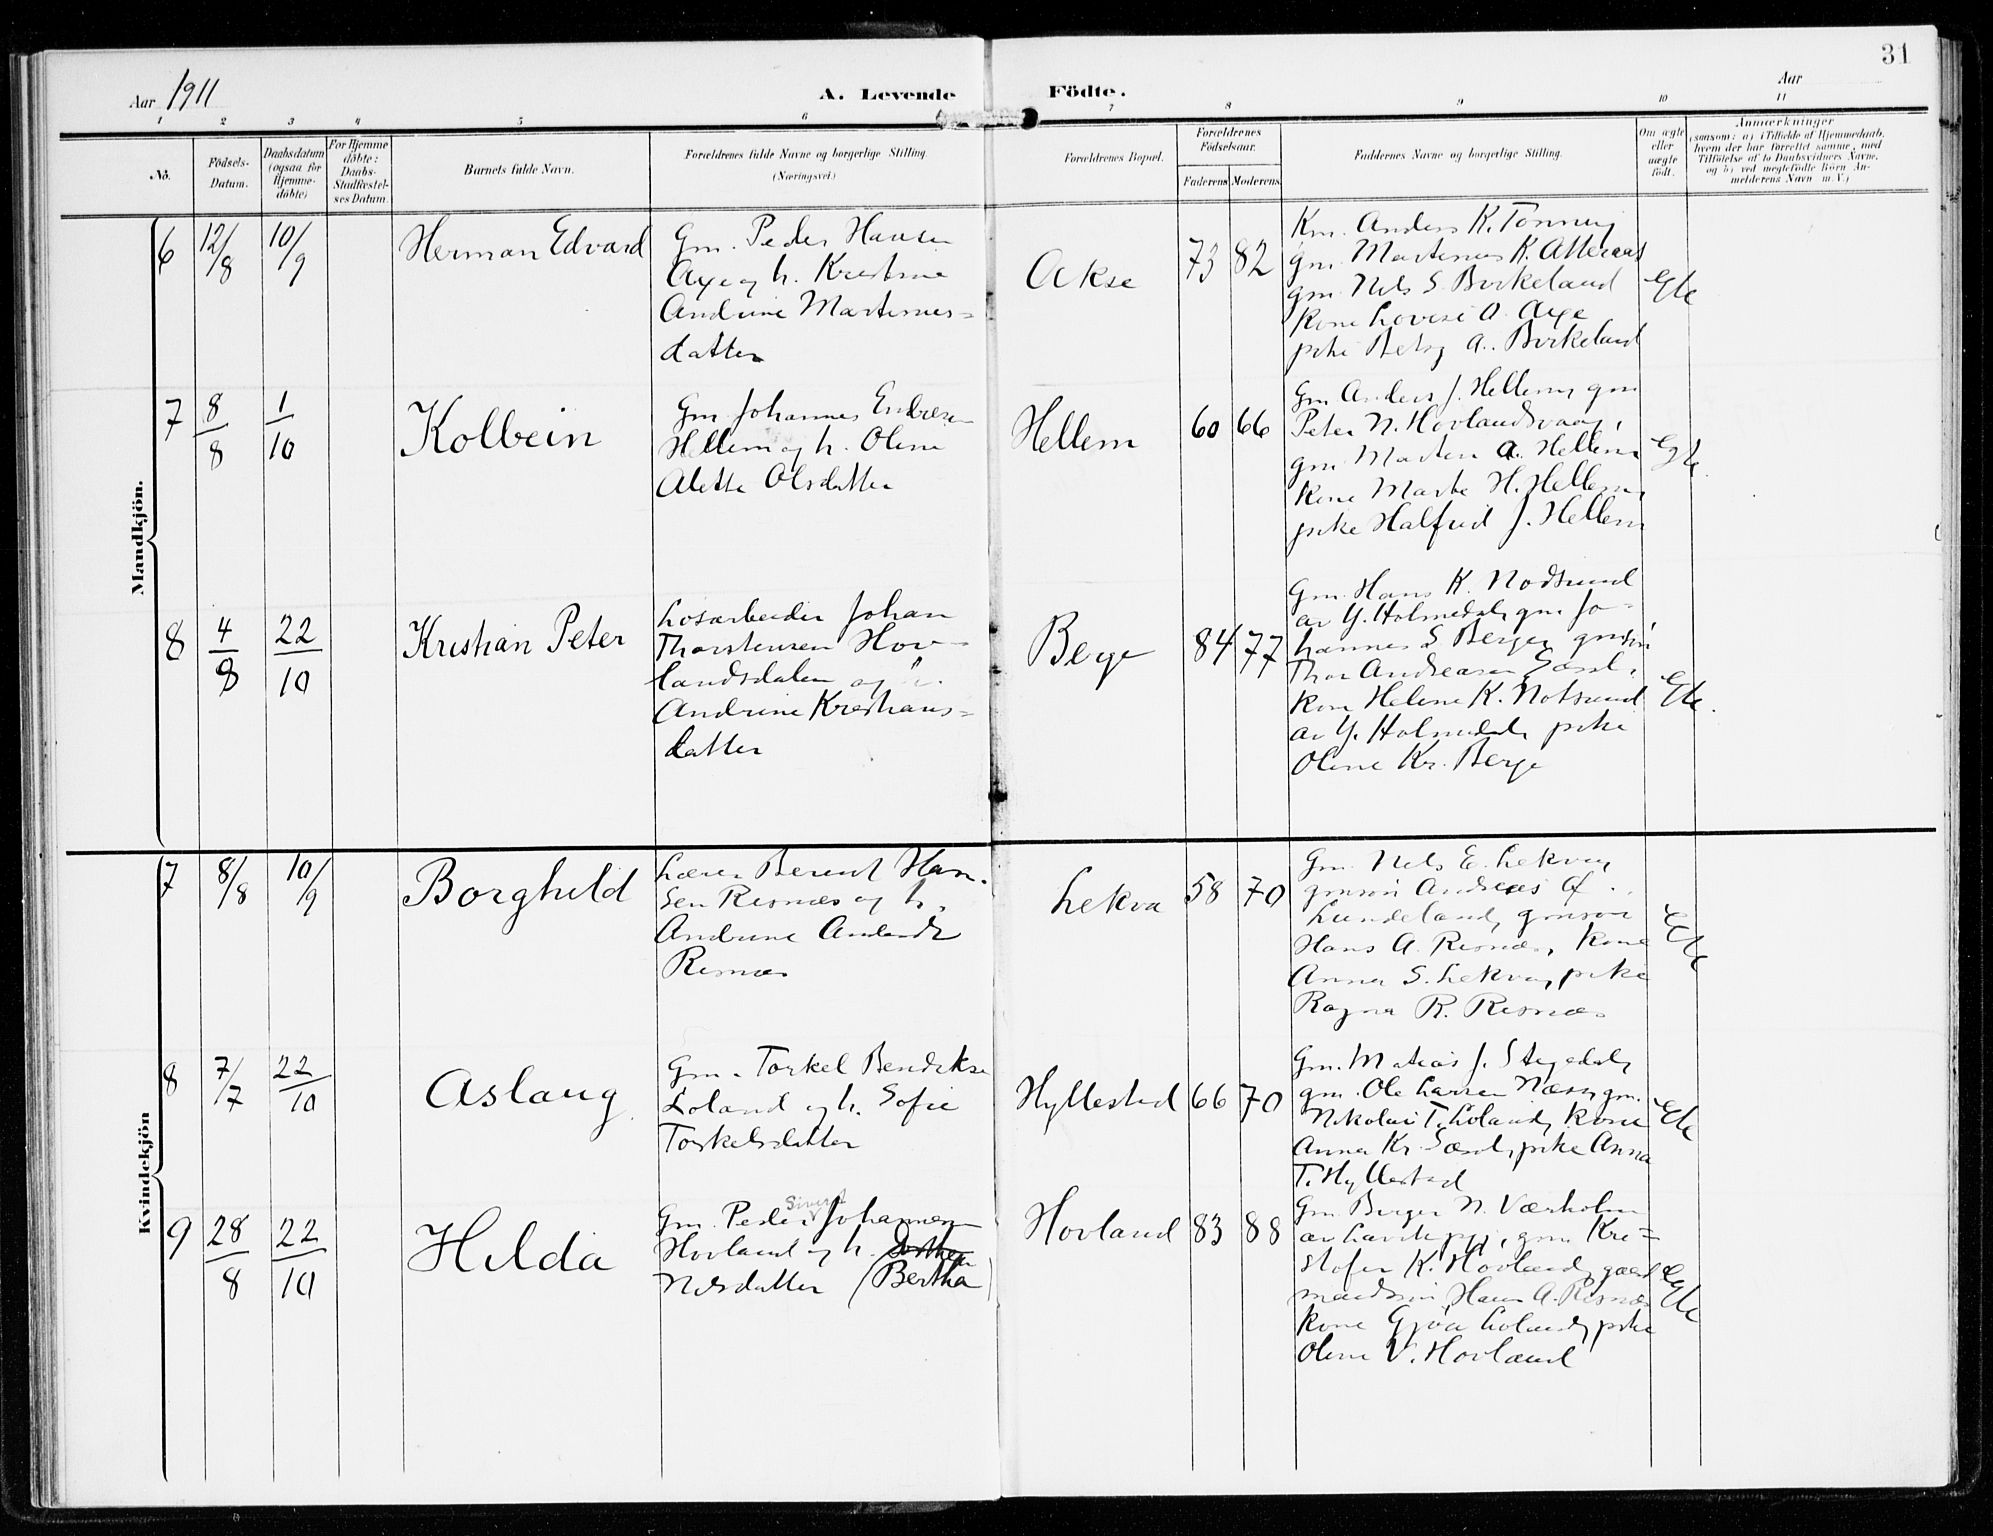 31
Aar 1911
A. Levende
Födte.
Aar
1 2 3 4 5 6 7 8 9 10 11
No.
Födsels-
Datum.
Daabsdatum
(ogsaa for
Hjemme-
döbte)
For Hjemme
döbte:
Daabs-
Stadfæstel-
ses Datum.
Barnets fulde Navn.
Forældrenes fulde Navne og borgerlige Stilling
(Næringsvei.)
Forældrenes Bopæl.
Forældrenes
Födselsaar.
Faderens
Moderens.
Faddernes Navne og borgerlige Stilling.
Om ægte
eller
uægte
födt.
Anmærkninger
(saasom: a) i Tilfælde af Hjemmedaab,
hvem der har forrettet samme, med
Tilföielse af to Daabsvidners Navne,
og b) ved uegtefödte Börn An-
melderens Navn m. V.)
Mandkjön.
6
12/8
10/9
Herman Edvard
Gm. Peder Hansen
Axe og h. Kristine
Andrine Martinus=
datter
Akse
73
82
Km. Anders K. Tonning
gm. Martinus K. Atteraas
gm. Nils S. Birkeland
kone Lovise O. Axe
pike Betsy A. Birkeland
Egte
7
8/8
1/10
Kolbein
Gm. Johannes Endresen
Hellem og h. Oline
Alette Olsdatter
Hellem
60
66
Gm Anders J. Hellem, gm
Peter N. Hovlandsvaag,
gm. Marten A. Hellem
kone Marte H. Hellem,
pike Halfrid J. Hellem
Egte.
8
4/8
22/10
Kristian Peter
Losarbeider Johan
Thorstensen Hov-
landsdalen og h.
Andrine Kristians=
datter
Berge
84
77
Gm. Hans K. Nodsund
av Y. Holmedal, gm Jo-
hannes S Berge, gmsön
Thor Andreasen
kone Helene K. Notsund
av Y. Holmedal, pike
Oline Kr. Berge
Egte.
Kvindekjön
7
8/8
10/9
Borghild
Lærer Berent Han-
sen Risnæs og h.
Andrine
Risnæs
Lekva
58
70
Gm. Nils E. Lekva,
gmsön Andreas
Lundeland, gmsön
Hans A. Risnæs, kone
Anna S. Lekva, pike
Ragna R. Risnæs
Egte
8
7/7
22/10
Aslaug
Gm. Torkel Bendiks
Loland og h. Sofie
Torkelsdatter
Hyllestad
66
70
Gm. Matias J. Staedal,
gm. Ole Larsen Næs, gm.
Nikolai T. Loland, kone
Anna Kr. pike Anna
T. Hyllestad
Egte
9
28/8
22/10
Hilda
Sivert
Gm. Peder Johannesen
Hovland og h. Dorthea
Nilsdatter (Bertha)
Hovland
83
88
Gm. Birger N. Værholm
av gm. Kri=
stofer K. Hovland, gaard
mandssön Hans A. Risnæs
kone Gjöa Loland, pike
Oline V. Hovland
Egte